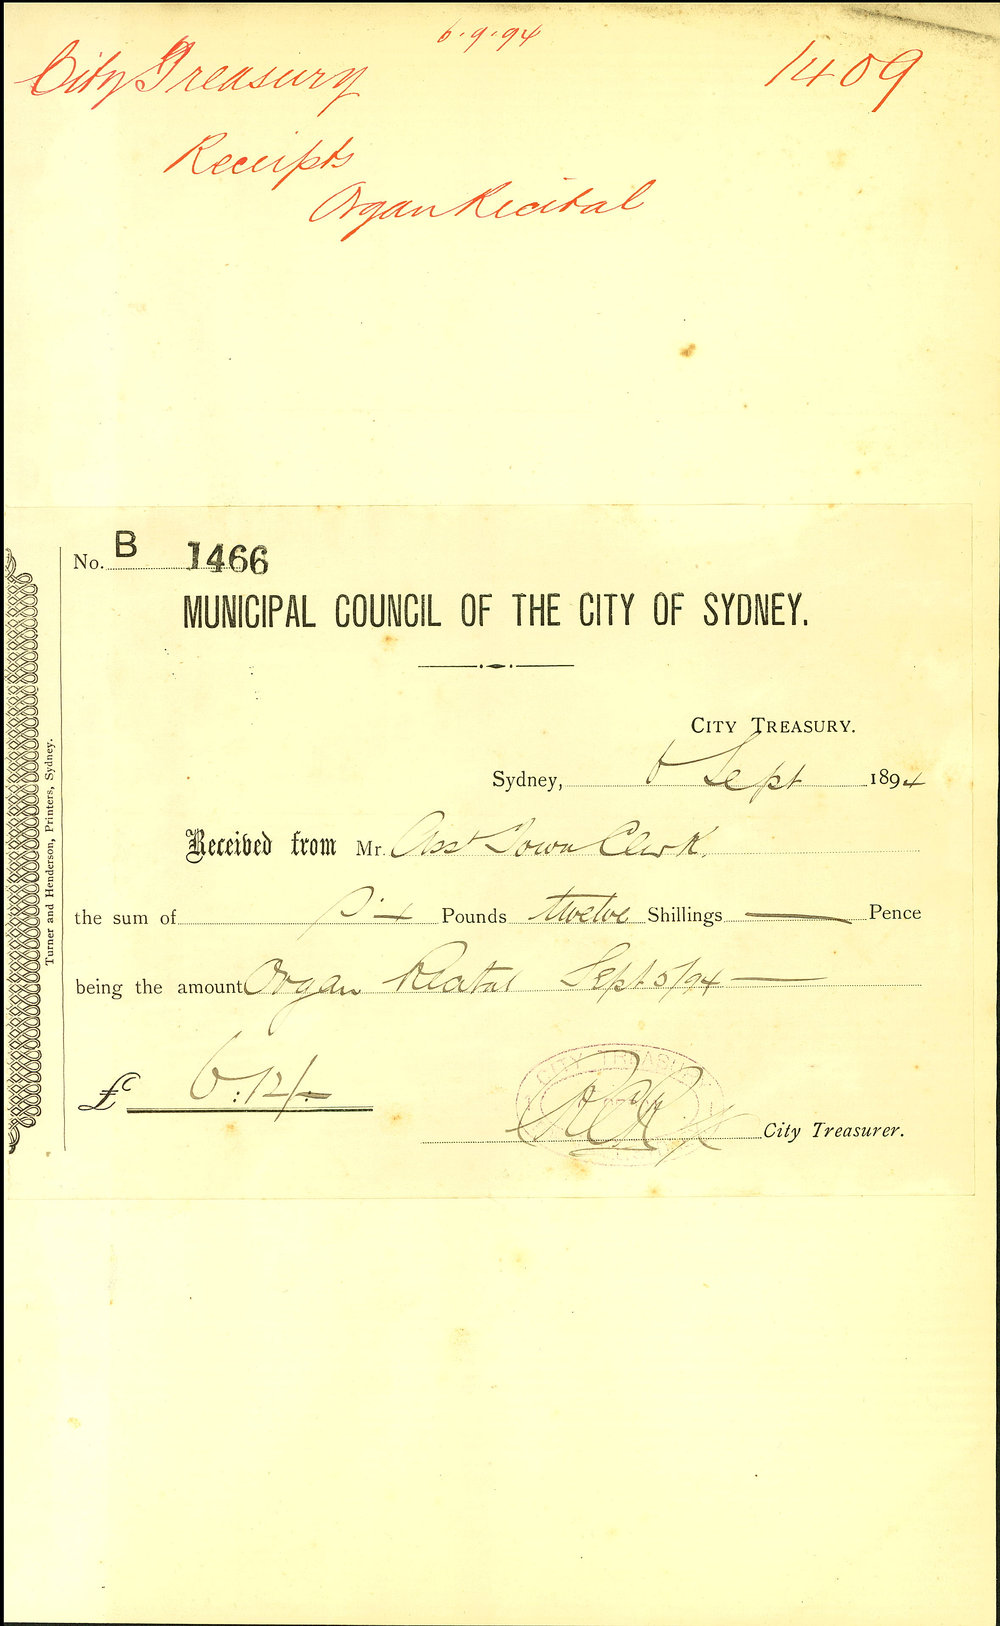 6.9.94
City Treasury
1409
Receipts
Organ Recital
No. B 1466
MUNICIPAL COUNCIL OF THE CITY OF SYDNEY.
CITY TREASURY.
Sydney, 6 Sept 1894
Received from Mr. Asst Town Clerk.
the sum of Six Pounds twelve Shillings — Pence
being the amount Organ Recital Sept 5/94 —
£ 6:12/-
CITY TREASURY
City Treasurer.
Turner and Henderson, Printers, Sydney.